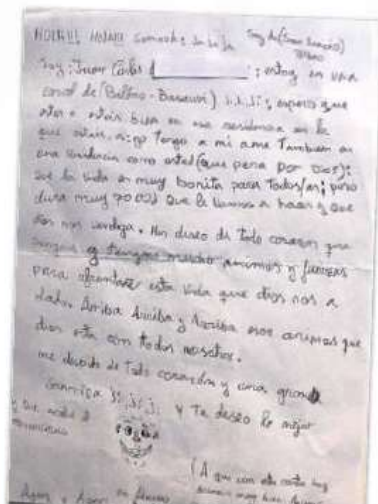 HOLA!!! HOLA!!! Soy de (San Ignacio)
Bilbao
Soy: Juan Carlos ; estoy en una
carcel de (Bilbao-Basauri) ji, ji, ji; espero que
estes o esteis bien en esa residencia en la
que estais. Tengo a mi ama Tambien en
una residencia como usted (que pena por Dios);
que la vida es muy bonita para todos/as; pero
dura muy poco; que le vamos a hacer, que
Dios nos . Os deseo de todo corazon que
tengais mucho animos y fuerzas
para afrontar esta vida que dios nos a
dado. Arriba Arriba y Arriba esos animos que
dios esta con todos nosotros.
me despido de todo corazon y una grande
sonrisa ji, ji, ji y Te deseo lo mejor
y que
(A que con esta carta hay
Agur, Agur